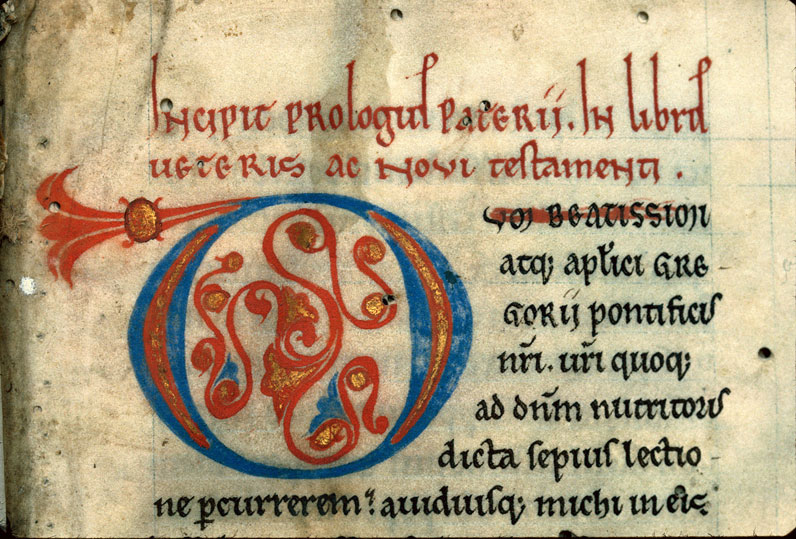 Incipit prologus paterii. In libris
ueteris ac novi testamenti.
Dum beatissimi
atq; aplici Gre-
gorij pontificis
nr̄i. ur̄i quoq;
ad dn̄m nutritoris
dicta sepius lectio-
ne pcurrerem; auiduisq; michi in eis